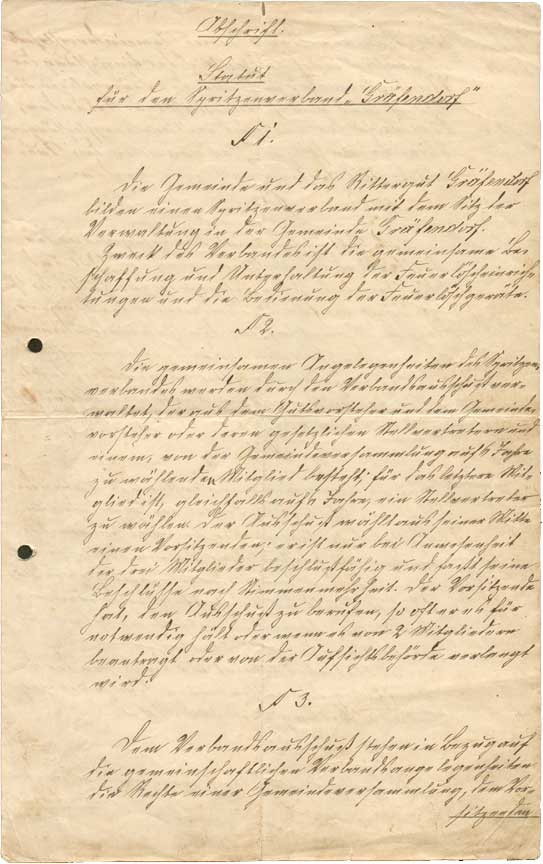 Abschrift.
Statut
für den Spritzenverband "Gräfendorf"
§ 1.
Die Gemeinde und das Rittergut Gräfendorf
bilden einen Spritzenverband mit dem Sitz der
Verwaltung in der Gemeinde Gräfendorf.
Zweck des Verbandes ist die gemeinsame Be-
schaffung und Unterhaltung der Feuerlöscheinrich-
tungen und die Bedienung der Feuerlöschgeräte.
§ 2.
Die gemeinsamen Angelegenheiten des Spritzen-
verbandes werden durch den Verbandsausschuß ver-
waltet, der aus dem Gutsvorsteher und dem Gemeinde-
vorsteher oder deren gesetzlichen Stellvertretern und
einem, von der Gemeindeversammlung auf 6 Jahre
zu wählenden Mitglied besteht; für das letztere Mit-
glied ist, gleichfalls auf 6 Jahre, ein Stellvertreter
zu wählen. Der Ausschuß wählt aus seiner Mitte
einen Vorsitzenden; er ist nur bei Anwesenheit
der drei Mitglieder beschlußfähig und faßt seine
Beschlüsse nach Stimmenmehrheit. Der Vorsitzende
hat, den Ausschuß zu berufen, so oft er es für
notwendig hält oder wenn es von 2 Mitgliedern
beantragt oder von der Aufsichtsbehörde verlangt
wird.
§ 3.
Dem Verbandsausschuß stehen in Bezug auf
die gemeinschaftlichen Verbandsangelegenheiten
die Rechte einer Gemeindeversammlung, dem Vor-
sitzenden